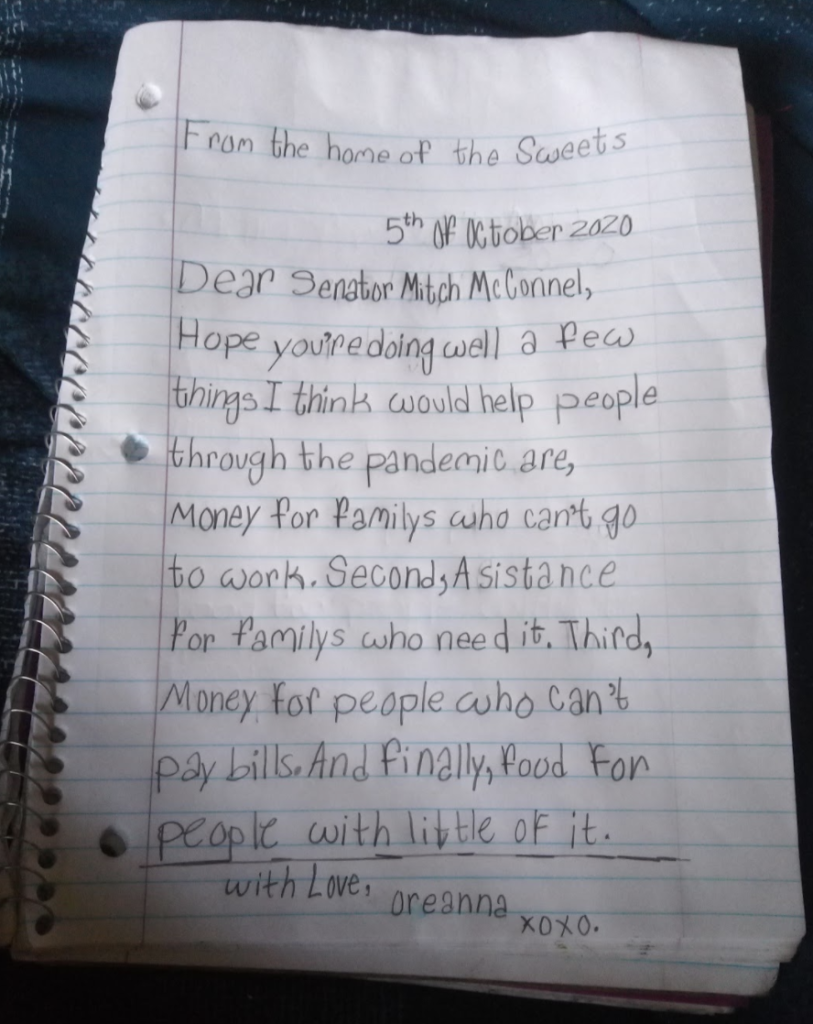 From the home of the Sweets
5th of October 2020
Dear Senator Mitch McConnel,
Hope you're doing well a few
things I think would help people
through the pandemic are,
Money for familys who can't go
to work. Second, Asistance
for familys who need it. Third,
Money for people who can't
pay bills. And finally, food for
people with little of it.
with Love,
oreanna
xoxo.